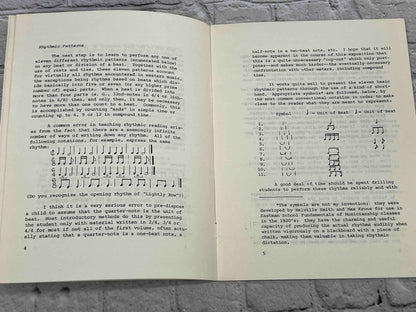 Rhythmic Patterns
The next step is to learn to perform any of
eleven different rhythmic patterns (enumerated below)
on any beat or division of a beat. Together with the
use of rests and ties, these eleven patterns account
for virtually all rhythms encountered in western music,
the exceptions being rhythms based on beats which div-
ide basically into five or seven (or any higher prime
number of) equal parts. When a beat is divided into
more than four parts (e.g., 32nd-notes in 4/4 or 16th-
notes in 6/8) then, and only then, it may be necessary
to have more than one count to a beat. Commonly, this
is accomplished by counting "ands" in simple time or
counting up to 6, 9 or 12 in compound time.
A common error in teaching rhythmic reading aris-
es from the fact that there are a seemingly infinite
number of ways of writing down any rhythm. All of the
following notations, for example, express the same
rhythm:
(Do you recognize the opening rhythm of "Lightly Row"?)
I think it is a very serious error to pre-dispose
a child to assume that the quarter-note is the unit of
beat. Most introductory methods do this by presenting
the student only with material written in 2/4, 3/4 or
4/4 for most if not all of the first volume, often actu-
ally stating that a quarter-note is a one-beat note, a
4
half-note is a two-beat note, etc. I hope that it will
become apparent in the course of this exposition that
this is a quite unnecessary "cop-out" which only post-
pones--and makes much harder--the eventually necessary
confrontation with other meters, including compound
time.
It works quite well to present the eleven basic
rhythmic patterns through the use of a kind of short-
hand. Appropriate symbols are as follows, below, by
the most common conventional notation in order to make
clear to the reader what they are meant to represent:
Symbol = Unit of Beat = Unit of Beat
1.
2.
3.
4.
5.
6.
7.
8.
9.
10.
11.
A good deal of time should be spent drilling
students to perform these rhythms reliably and with
*The symbols are not my invention; they were
developed by Melville Smith and Max Krone for use in
Eastman School Fundamentals of Musicianship classes
in the 1920's; they have the charming and useful
capacity of producing the actual rhythms audibly when
written vigorously on a blackboard with a piece of
chalk, making them valuable in taking rhythmic
dictation.
5